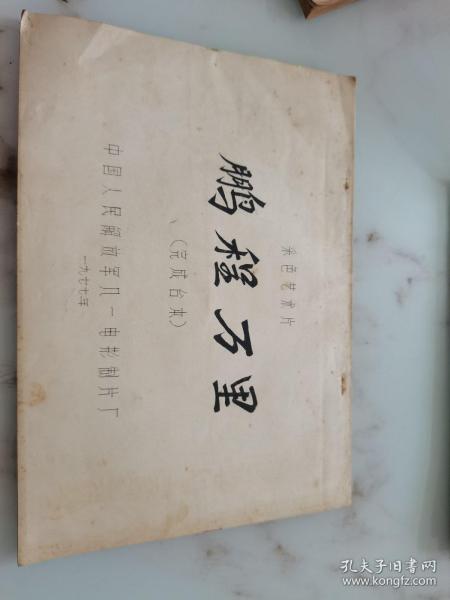 采色艺术片
鹏程万里
(完成台本)
中国人民解放军八一电影制片厂
一九七七年
孔夫子旧书网
www.kongfz.com